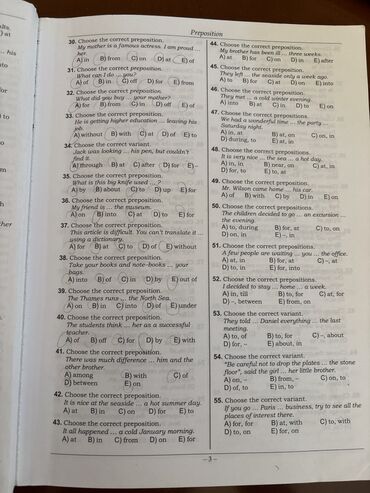 Preposition
30. Choose the correct preposition.
My mother is a famous actress. I am proud ...
her.
A) in B) from C) on D) at E) of
31. Choose the correct preposition.
What can I do ... you?
A) in B) of C) off D) for E) from
32. Choose the correct preposition.
What did you buy ... your mother?
A) for B) from C) in D) off E) of
33. Choose the correct preposition.
He is getting higher education ... leaving his
job.
A) without B) with C) at D) of E) to
34. Choose the correct variant.
Jack was looking ... his pen, but couldn't
find it.
A) through B) at C) after D) for E) -
35. Choose the correct preposition.
What is this big knife used ...?
A) by B) about C) to D) up E) for
36. Choose the correct preposition.
My friend is ... the museum.
A) on B) into C) at D) to E) for
37. Choose the correct preposition.
This article is difficult. You can't translate it ...
using a dictionary.
A) for B) at C) to D) of E) without
38. Choose the correct preposition.
Take your books and note-books ... your
bags.
A) into B) of C) in D) by E) out of
39. Choose the correct preposition.
The Thames runs ... the North Sea.
A) on B) in C) into D) of E) under
40. Choose the correct preposition.
The students think ... her as a successful
teacher.
A) of B) off C) for D) by E) with
41. Choose the correct preposition.
There was much difference ... him and the
other brother.
A) among B) with C) of
D) between E) on
42. Choose the correct preposition.
It is nice at the seaside ... a hot summer day.
A) at B) in C) on D) for E) to
43. Choose the correct preposition.
It all happened ... a cold January morning.
A) at B) in C) from D) on E) for
44. Choose the correct preposition.
My brother has been ill ... three weeks.
A) at B) for C) on D) in E) after
45. Choose the correct preposition.
They left ... the seaside only a week ago.
A) to B) for C) at D) on E) into
46. Choose the correct preposition.
They met ... a cold winter evening.
A) into B) at C) in D) to E) on
47. Choose the correct preposition.
We had a wonderful time ... the party ...
Saturday night.
A) in, at B) at, on C) on, in
D) during, to E) at, in
48. Choose the correct preposition.
It is very nice ... the sea ... a hot day.
A) in, in B) near, on C) at, in
D) for, to E) to, at
49. Choose the correct preposition.
Mr. Wilson came home ... his car.
A) of B) with C) by D) in E) on
50. Choose the correct preposition.
The children decided to go ... an excursion ...
the evening.
A) to, during B) for, at C) to, on
D) on, in E) -, in
51. Choose the correct preposition.
A few people are waiting ... you ... the office.
A) at, in B) for, at C) -, at
D) to, in E) for, into
52. Choose the correct preposition.
I decided to stay ... home ... a week.
A) in, till B) to, for C) at, for
D) -, between E) from, on
53. Choose the correct variant.
They told ... Daniel everything ... the last
meeting.
A) to, of B) to, for C) -, about
D) for, - E) about, in
54. Choose the correct variant.
"Be careful not to drop the plates ... the stone
floor", said the girl ... her little brother.
A) on, - B) from, - C) on, to
D) of, to E) in, to
55. Choose the correct variant.
If you go ... Paris ... business, try to see all the
places of interest there.
A) for, for B) at, with C) to, with
D) to, on E) for, on
-3-